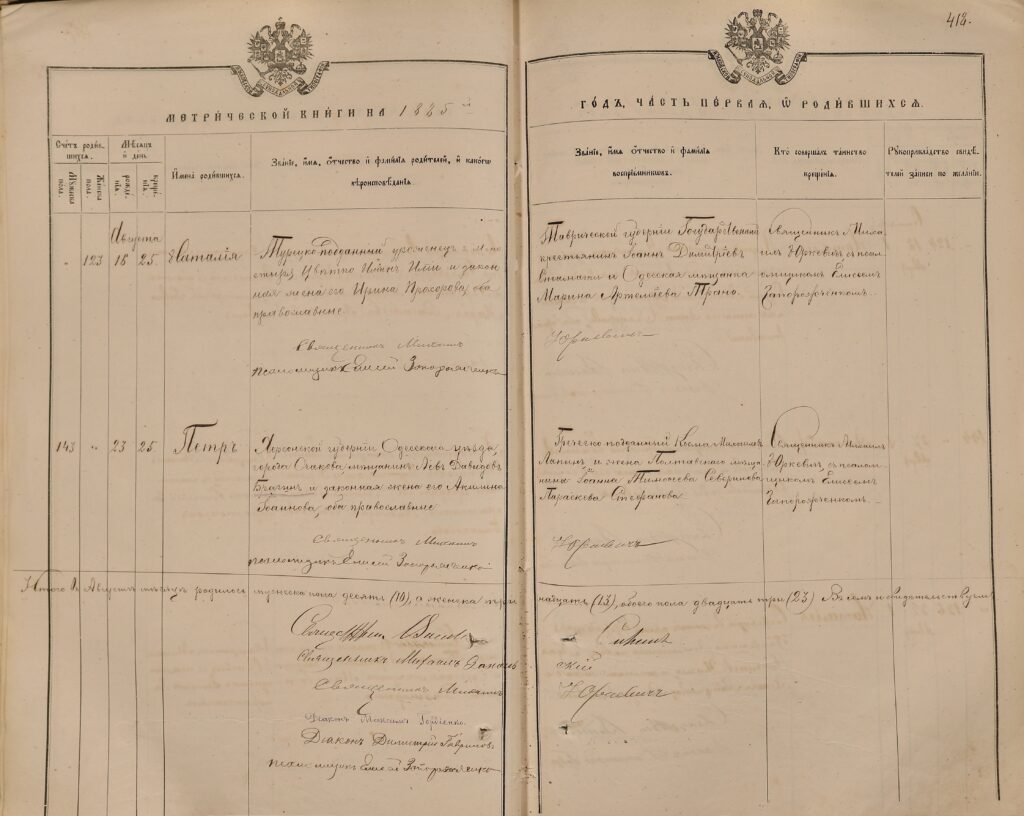 418.
МЕТРИЧЕСКОЙ КНИГИ НА 1885 й
ГОДЪ, ЧАСТЬ ПЕРВАЯ, Ѡ РОДИВШИХСЯ.
Счетъ родив-
шихся.
Мужеска
пола.
Женска
пола.
Месяцъ
и день
рожде-
нія.
креще-
нія.
Имена родившихся.
Званіе, имя, отчество и фамилія родителей, и какого
вероисповеданія.
Званіе, имя отчество и фамилія
воспріемниковъ.
Кто совершалъ таинство
крещенія.
Рукоприкладство свиде-
телей записи по желанію.
Августа
" 123 16 25. Наталія
Турецко-подданный уроженецъ
Цветко Илія и закон-
ная жена его Ирина Прохорова, оба
православные
Священникъ Михаилъ
псаломщикъ Елисей Запорожченко
Таврической губерніи Государственный
крестьянинъ Іоаннъ Димитріевъ
Стаматин и Одесская мещанка
Марина Артеміева
Юркевичъ
Священникъ Миха-
илъ Юркевичъ съ псал-
омщикомъ Елисеем
Запорожченкомъ.
143 " 23 25. Петръ
Херсонской губерніи, Одесского уезда,
города Очакова мещанинъ Левъ Давидовъ
и законная жена его Акилина
Іоаннова, оба православные
Священникъ Михаилъ
псаломщикъ Елисей Запорожченко
Греческо подданный Косма Михаиловъ
и жена Полтавского меща-
нина Іоанна Тимофеева Северинова
Параскева Стефанова
Юркевичъ
Священникъ Михаилъ
Юркевичъ, съ псалом-
щикомъ Елисеем
Запорожченкомъ.
Итого въ Августе месяце родилось мужеска пола десять (10), а женска три-
надцать (13), обоего пола двадцать три (23) В семъ и свидетельствуем:
Священникъ
Священникъ Михаилъ
Священникъ Михаилъ
Юркевичъ
Діаконъ Максимъ Гордіенко.
Діаконъ Димитрій Гавриловъ
псаломщикъ Елисей Запорожченко